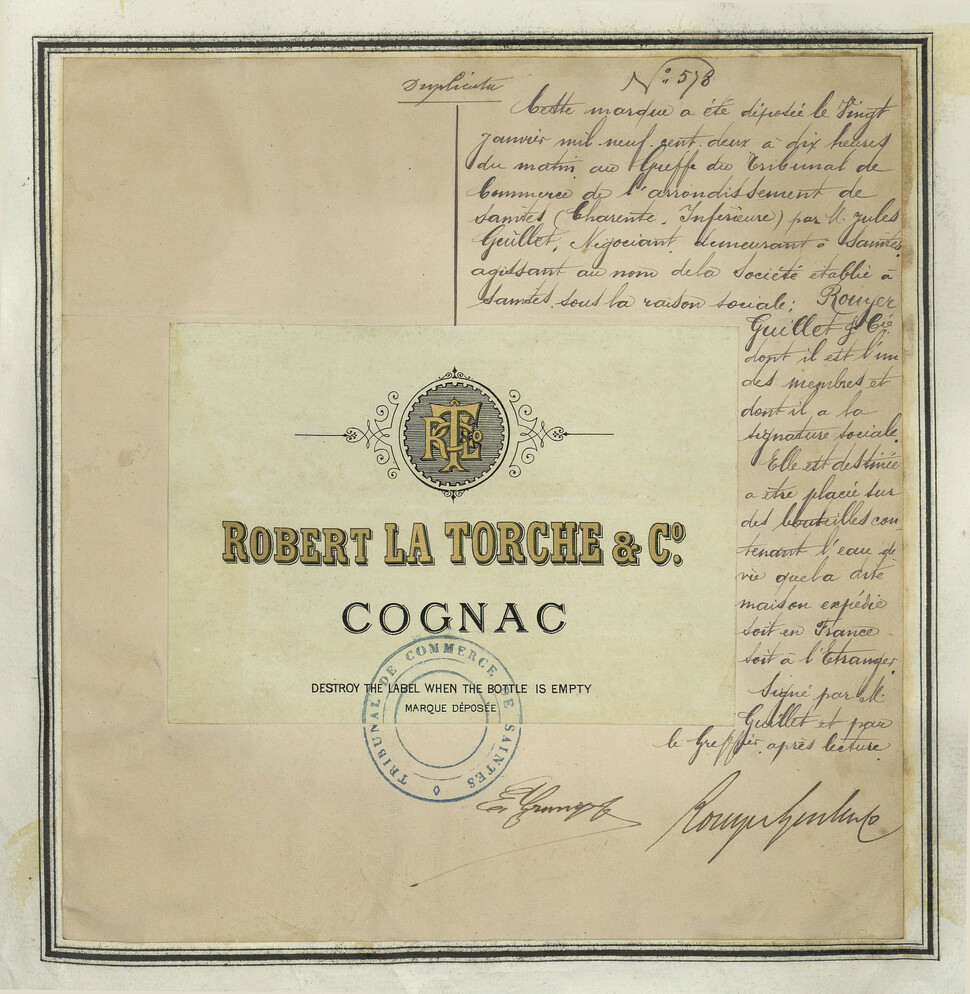 Duplicata
N° 578
Cette marque a été déposée le Vingt
Janvier mil neuf cent deux à dix heures
du matin au Greffe du Tribunal de
Commerce de l'arrondissement de
Saintes (Charente Inférieure) par M. Jules
Guillet, Négociant demeurant à Saintes
agissant au nom de la Société établie à
Saintes sous la raison sociale; Rouyer
Guillet & Cie
dont il est l'un
des membres et
dont il a la
signature sociale.
Elle est destinée
a etre placée sur
des bouteilles con-
tenant l'eau de
vie que la dite
maison expédie
soit en France
soit à l'Etranger.
Signé par M.
Guillet et par
le Greffier après lecture
RLT&Co
ROBERT LA TORCHE & Co.
COGNAC
DESTROY THE LABEL WHEN THE BOTTLE IS EMPTY
MARQUE DÉPOSÉE
TRIBUNAL DE COMMERCE DE SAINTES
Rouyer Guillet & Co